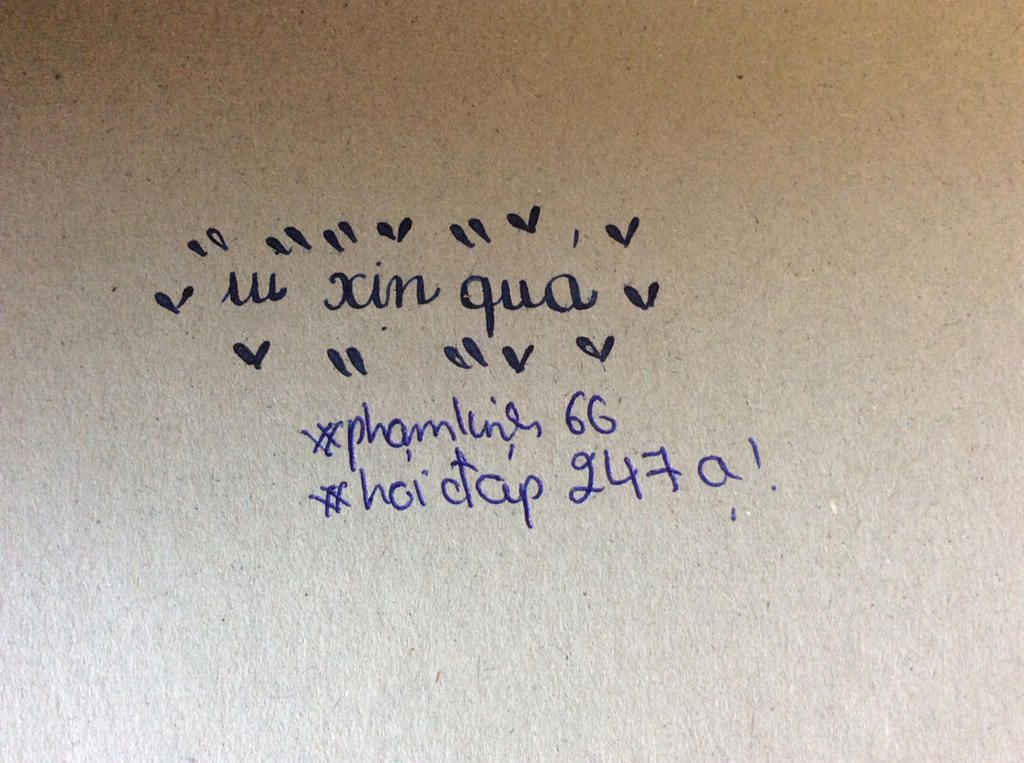 iu xin quá
#phamlinh 66
#hỏi đáp 247 ạ!